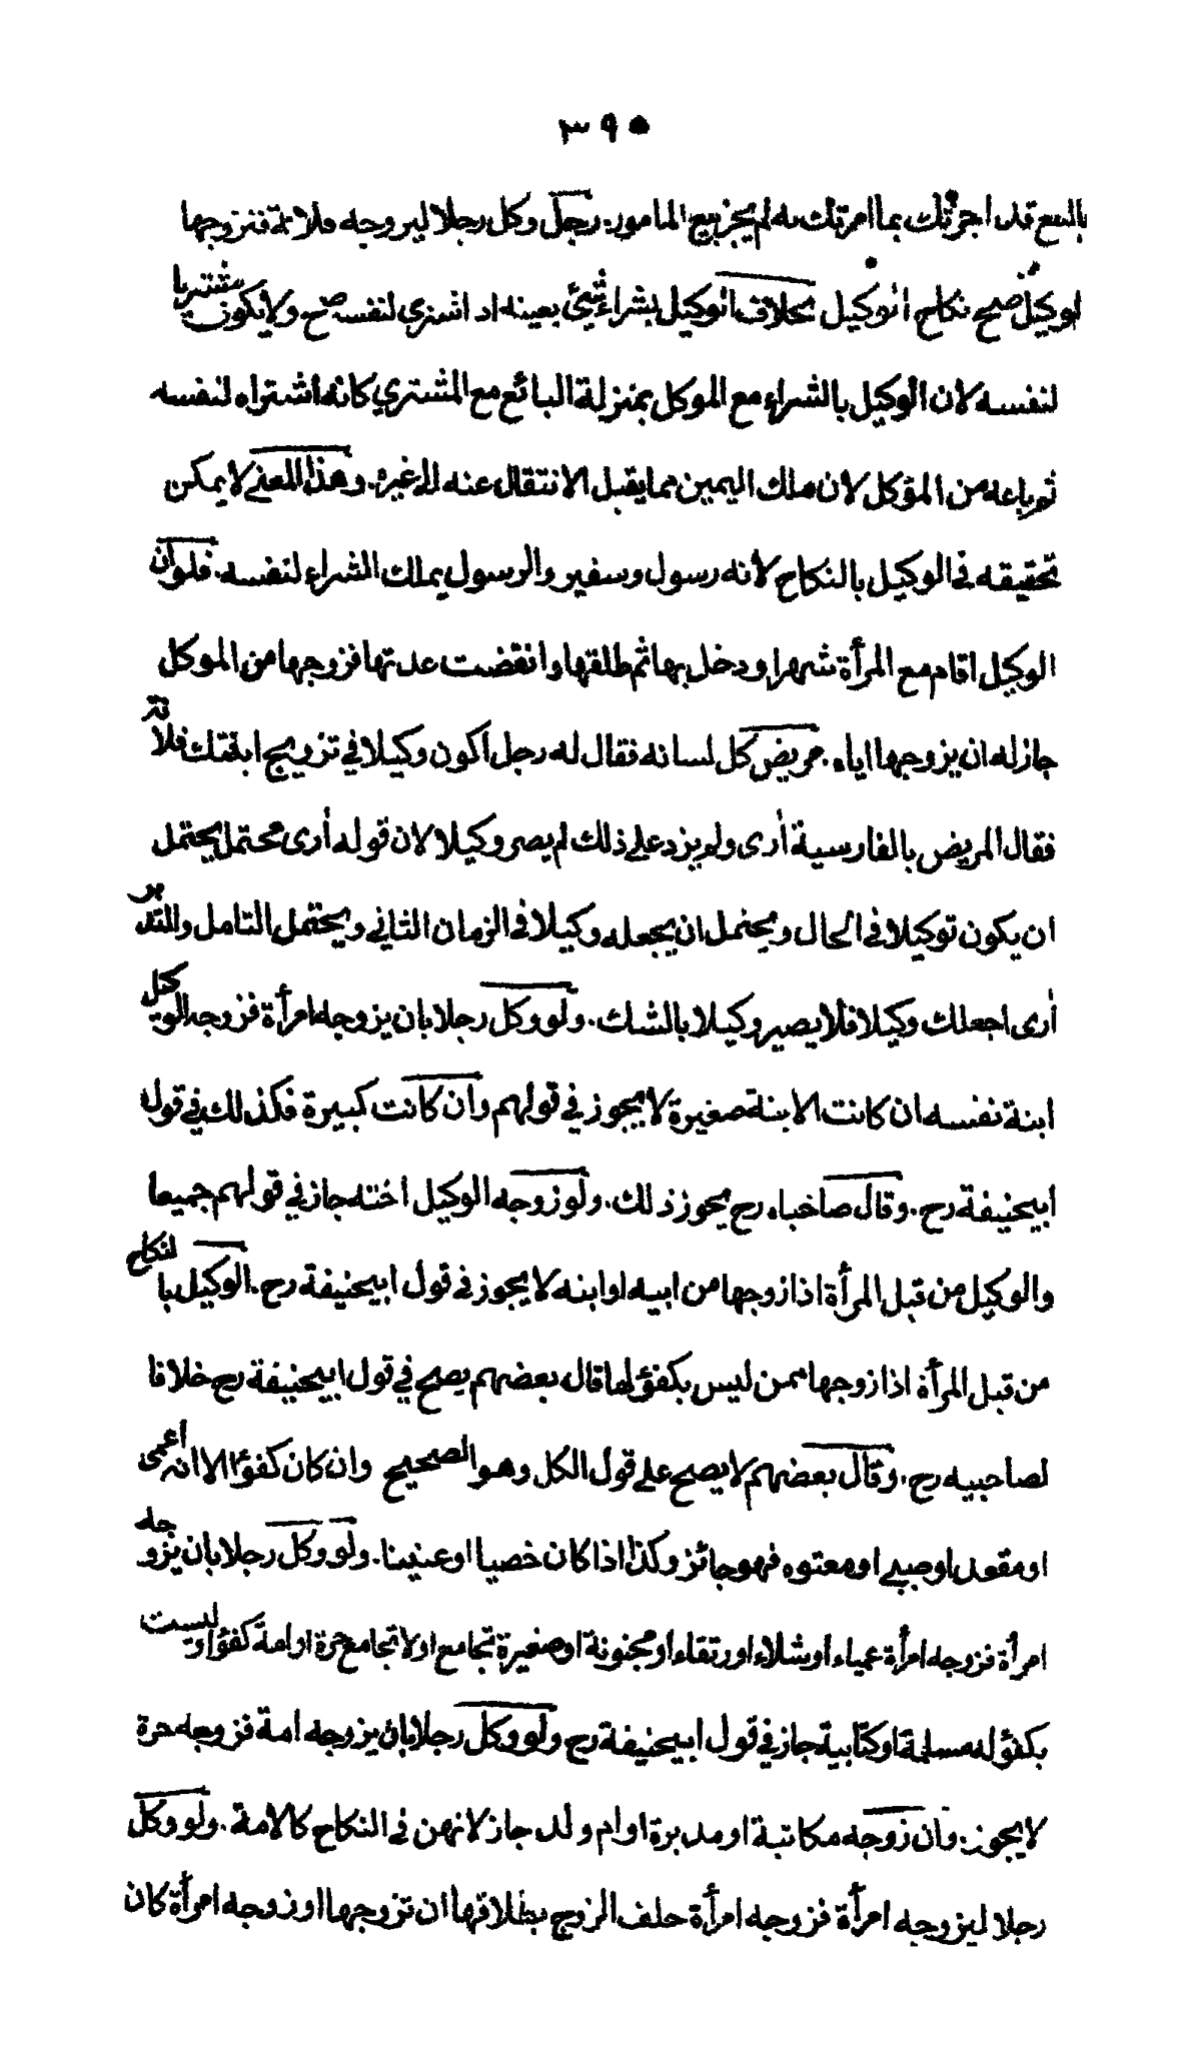 ٣٩٥
بالبيع قد اجرتك بما امرتك به لم يجز بيع المامور. رجل وكل رجلا ليزوجه فلانة فتزوجها
الوكيل صح نكاح الوكيل بخلاف الوكيل بشراء شيئ بعينه اذ اشترى لنفسه صح ولا يكون مشتريا
لنفسه لان الوكيل بالشراء مع الموكل بمنزلة البائع مع المشتري كانه اشتراه لنفسه
ثم باعه من المؤكل لان ملك اليمين مما يقبل الانتقال عنه الى غيره. وهذا المعنى لا يمكن
تحقيقه في الوكيل بالنكاح لأنه رسول وسفير والرسول يملك الشراء لنفسه. فلو ان
الوكيل اقام مع المرأة شهرا ودخل بها ثم طلقها وانقضت عدتها فزوجها من الموكل
جاز له ان يزوجها اياه. مريض كل لسانه فقال له رجل اكون وكيلا في تزويج ابنتك فلانة
فقال المريض بالفارسية أرى ولم يزد على ذلك لم يصر وكيلا لان قوله أرى محتمل يحتمل
ان يكون توكيلا في الحال ويحتمل ان يجعله وكيلا في الزمان الثاني ويحتمل التامل والتدبر
أرى اجعلك وكيلا فلا يصير وكيلا بالشك. ولو وكل رجلا بان يزوجه امرأة فزوجه الوكيل
ابنة نفسه ان كانت الابنة صغيرة لا يجوز في قولهم وان كانت كبيرة فكذلك في قول
ابيحنيفة رح. وقال صاحباه رح يجوز ذلك. ولو زوجه الوكيل اخته جاز في قولهم جميعا
والوكيل من قبل المرأة اذا زوجها من ابيه او ابنه لا يجوز في قول ابيحنيفة رح. الوكيل بالنكاح
من قبل المرأة اذا زوجها ممن ليس بكفؤ لها قال بعضهم يصح في قول ابيحنيفة رح خلافا
لصاحبيه رح. وقال بعضهم لا يصح على قول الكل وهو الصحيح وان كان كفؤا الا انه أعمى
او مقعد او صبي او معتوه فهو جائز وكذا اذا كان خصيا او عنينا. ولو وكل رجلا بان يزوجه
امرأة فزوجه امرأة عمياء او شلاء او رتقاء او مجنونة او صغيرة تجامع او لا تجامع حرة او امة كفؤا او ليست
بكفؤ له مسلمة او كتابية جاز في قول ابيحنيفة رح ولو وكل رجلا بان يزوجه امة فزوجه حرة
لا يجوز. وان زوجه مكاتبة او مدبرة او ام ولد جاز لانهن في النكاح كالامة. ولو وكل
رجلا ليزوجه امرأة فزوجه امرأة حلف الزوج بطلاقها ان تزوجها او زوجه امرأة كان